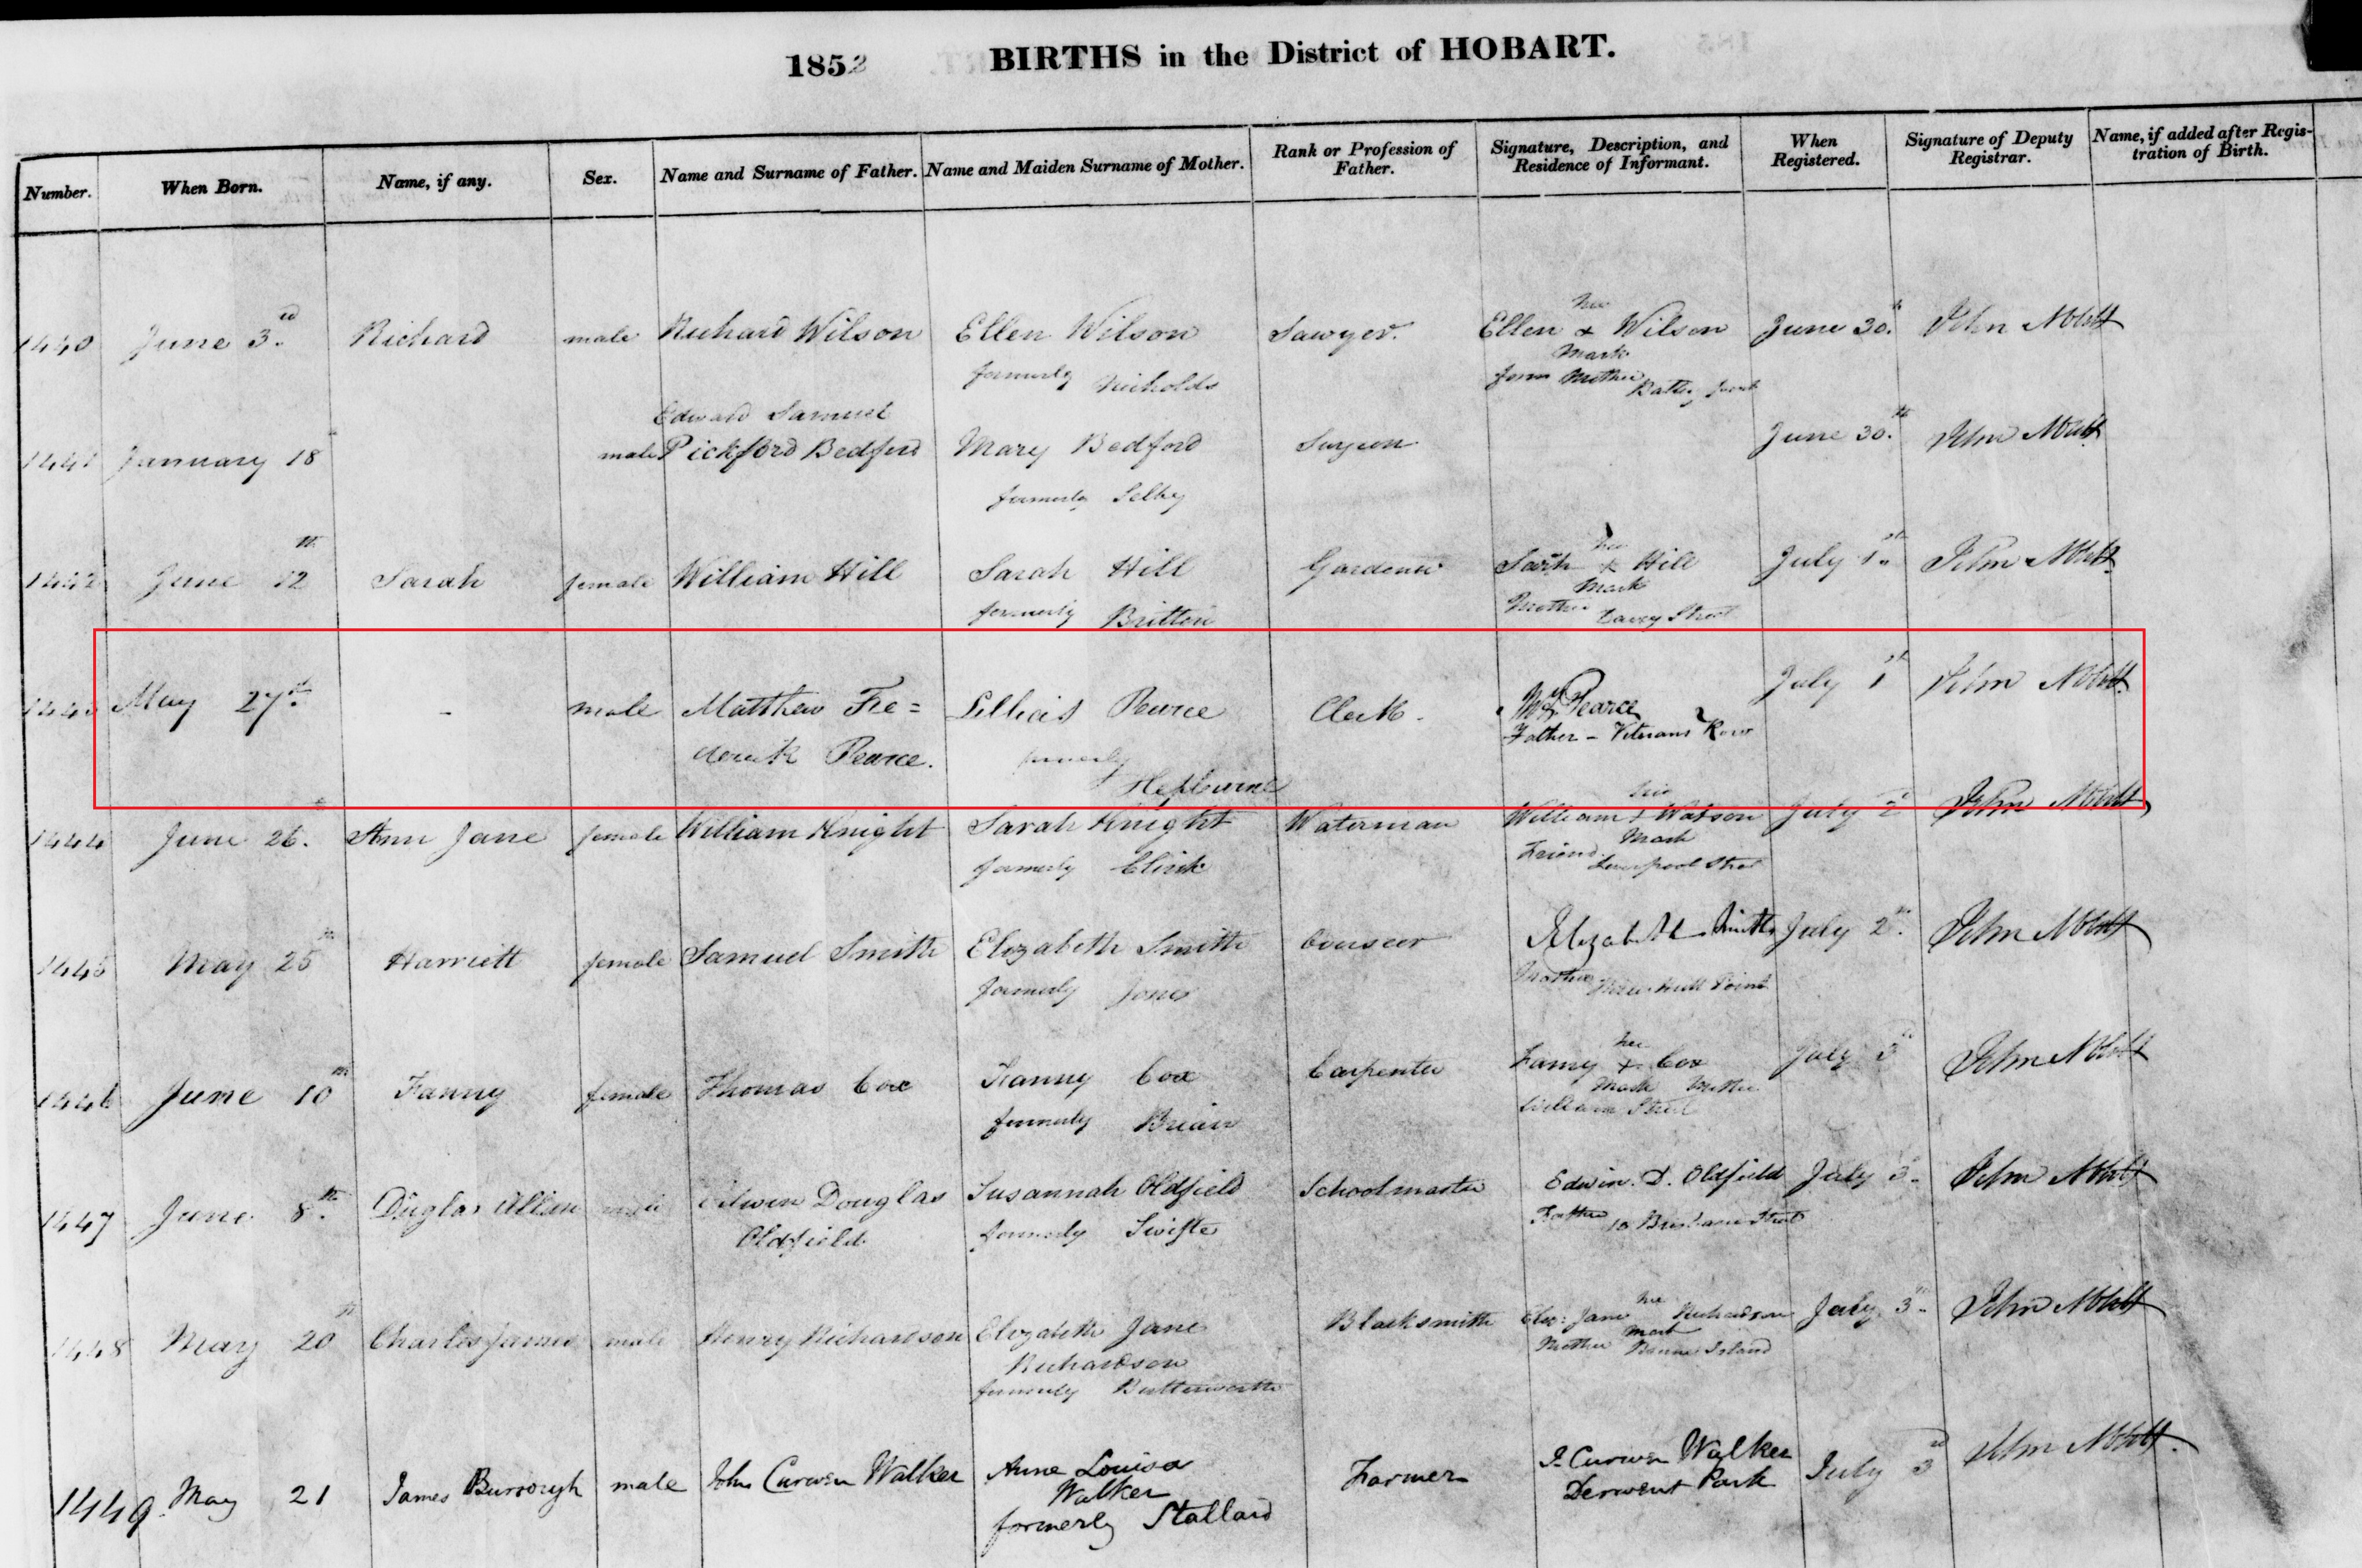 1852 BIRTHS in the District of HOBART.
Number. When Born. Name, if any. Sex. Name and Surname of Father. Name and Maiden Surname of Mother. Rank or Profession of Father. Signature, Description, and Residence of Informant. When Registered. Signature of Deputy Registrar. Name, if added after Registration of Birth.
1440 June 3rd Richard male Richard Wilson Ellen Wilson formerly Nicholds Sawyer. Ellen her x Mark Wilson Mother June 30th John Abbott
1441 January 18 male Edward Samuel Pickford Bedford Mary Bedford formerly Selby Surgeon June 30th John Abbott
1442 June 12th Sarah female William Hill Sarah Hill formerly Britton Gardener Sarah her x Mark Hill Mother Davey Street July 1st John Abbott
1443 May 27th - male Matthew Fre= derick Pearce. Pearce formerly Clerk. Pearce Father - Veterans Row July 1st John Abbott
1444 June 26. Ann Jane female William Knight Sarah Knight formerly Clink Waterman William his x Mark Watson Friend Liverpool Street July 2d John Abbott
1445 May 25th Harriett female Samuel Smith Elizabeth Smith formerly Jones Elizabeth Smith Mother Point July 2nd John Abbott
1446 June 10th Fanny female Thomas Cox Fanny Cox formerly Brian Carpenter Fanny her x Mark Cox Mother William Street July 3rd John Abbott
1447 June 8th Duglas Allan male Edwin Douglas Oldfield Susannah Oldfield formerly Swifte Schoolmaster Edwin. D. Oldfield Father 10 Brisbane Street July 3d John Abbott
1448 May 20th Charles James male Henry Richardson Elizabeth Jane Richardson formerly Butterworth Blacksmith Eliz: Jane her Mark Richardson Mother Island July 3rd John Abbott
1449. May 21 James Burrough male John Curwen Walker Anne Louisa Walker formerly Stallard Farmer J. Curwen Walker Derwent Park July 3d John Abbott.